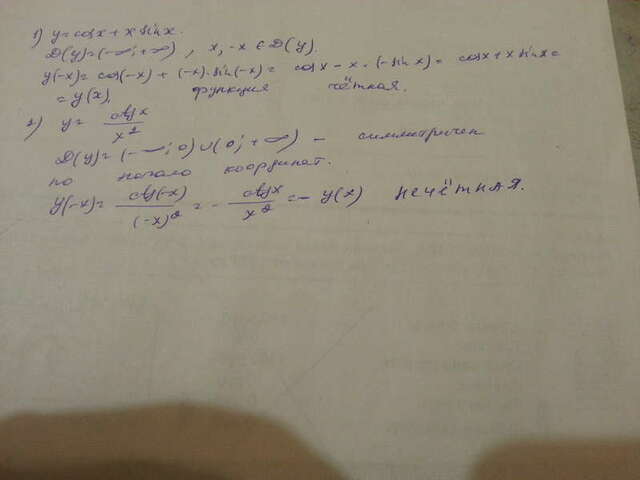 1) y=cosx+x·sinx.
D(y)=(-∞;+∞), x,-x∈D(y).
y(-x)=cos(-x)+(-x)·sin(-x)=cosx-x·(-sinx)=cosx+x sinx=
=y(x) функция чётная.
2) y= ctgx / x²
D(y)=(-∞;0)∪(0;+∞) - симметричен
по начало координат.
y(-x)= ctg(-x) / (-x)² = - ctgx / x² =-y(x) нечётная.